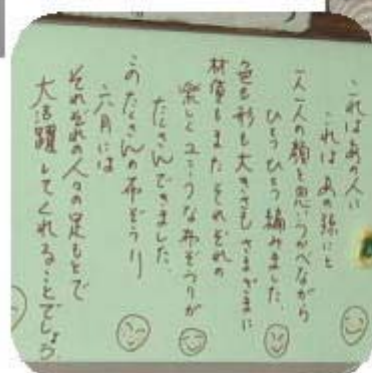 これはあの人に
これはあの孫にと
一人一人の顔を思いうかべながら
ひとつひとつ編みました。
色も形も大きさもさまざまに
材質もまたそれぞれの
楽しくユニークな布ぞうりが
たくさんできました。
このたくさんの布ぞうり
六月には
それぞれの人々の足もとで
大活躍してくれることでしょう。